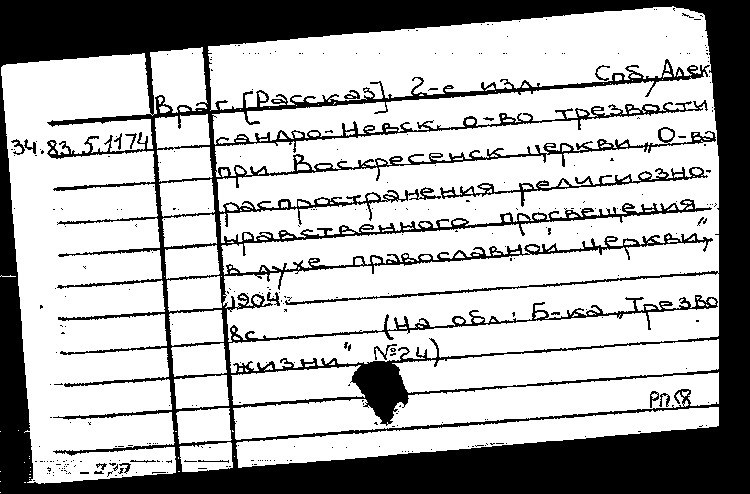 Враг. [Рассказ]. 2-е изд. Спб., Алек
34.83.5.1174 сандро-Невск. о-во трезвости
при Воскресенск церкви „О-ва
распространения религиозно-
нравственного просвещения
в духе православной церкви",
1904.
8с. (На обл.: Б-ка „Трезво
жизни" №24)